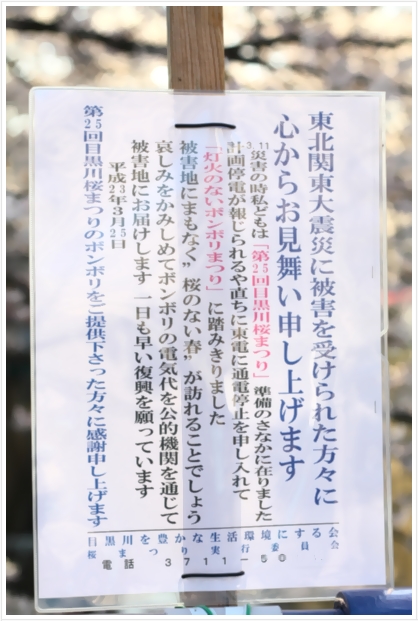 東北関東大震災に被害を受けられた方々に
心からお見舞い申し上げます
3,11災害の時私どもは「第25回目黒川桜まつり」準備のさなかに在りました
計画停電が報じられるや直ちに東電に通電停止を申し入れて
「灯火のないボンボリまつり」に踏みきりました
被害地にまもなく〝桜のない春〟が訪れることでしょう
哀しみをかみしめてボンボリの電気代を公的機関を通じて
被害地にお届けします 一日も早い復興を願っています
平成23年3月25日
第25回目黒川桜まつりのボンボリをご提供下さった方々に感謝申し上げます
目黒川を豊かな生活環境にする会
桜まつり実行委員会
電話 3711-5